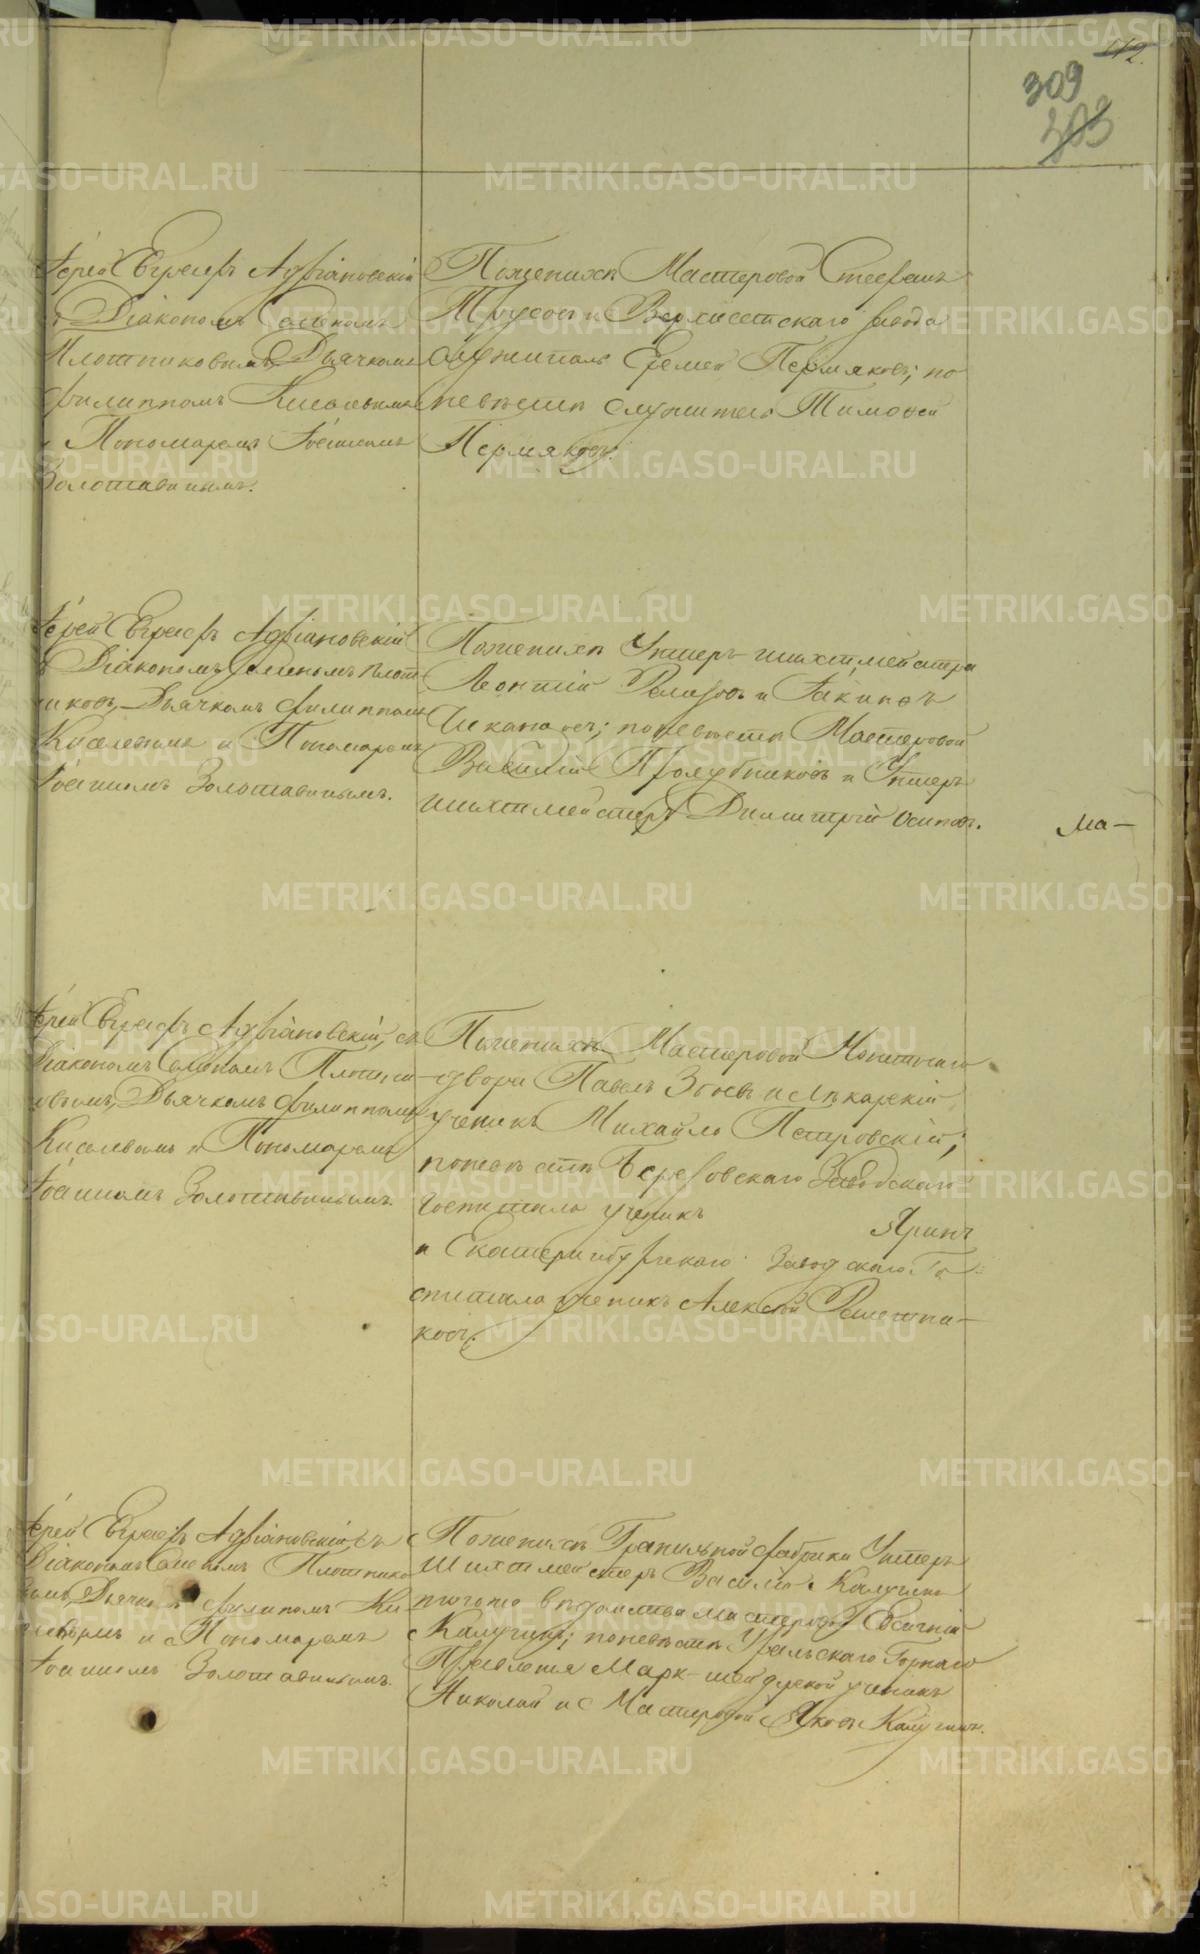 112.
309
303
Іерей Евграфъ Адріановскій
съ Діакономъ Семеномъ
Плотниковымъ, Дьячкомъ
Филиппомъ Киселевымъ
и Пономаремъ Іоанномъ
Золотавинымъ.
По женихѣ Мастеровой Стефанъ
и Верхисетскаго завода
служитель Еремей Пермяковъ; по
невѣстѣ служитель Тимофей
Пермяковъ.
Іерей Евграфъ Адріановскій
съ Діакономъ Семеномъ Плот
никовъ, Дьячкомъ Филиппомъ
Киселевымъ и Пономаремъ
Іоанномъ Золотавинымъ.
По женихѣ Унтеръ-шихтмейстера
Леонтій и Іакинфъ
Чекановъ; по невѣстѣ Мастеровой
Василій Пролубщиковъ и Унтеръ
шихтмейстеръ Димитрій Осиповъ.
Ма-
Іерей Евграфъ Адріановскій, съ
Діакономъ Семеномъ Плотни
ковымъ, Дьячкомъ Филиппомъ
Киселевымъ и Пономаремъ
Іоанномъ Золотавинымъ.
По женихѣ Мастеровой Монетнаго
двора Павелъ и Лѣкарскій
ученикъ Михайло Петровскій;
по невѣстѣ Березовскаго Заводскаго
Госпиталя ученикъ Яринъ
и Екатеринбургскаго Заводскаго Го-
спиталя ученикъ Алексѣй Решетни-
ковъ.
Іерей Евграфъ Адріановскій съ
Діакономъ Семеномъ Плотнико
вымъ, Дьячкомъ Филипомъ Ки
селевымъ и Пономаремъ
Іоанномъ Золотавинымъ.
По женихѣ Гранильной фабрики Унтеръ
Шихтмейстеръ Василій Калугинъ
того вѣдомства мастеровой Евсигній
Калугинъ; по невѣстѣ Уральскаго Горнаго
Правленія Марк-шейдерской ученикъ
Николай и Мастеровой Яковъ Калугинъ.
METRIKI.GASO-URAL.RU